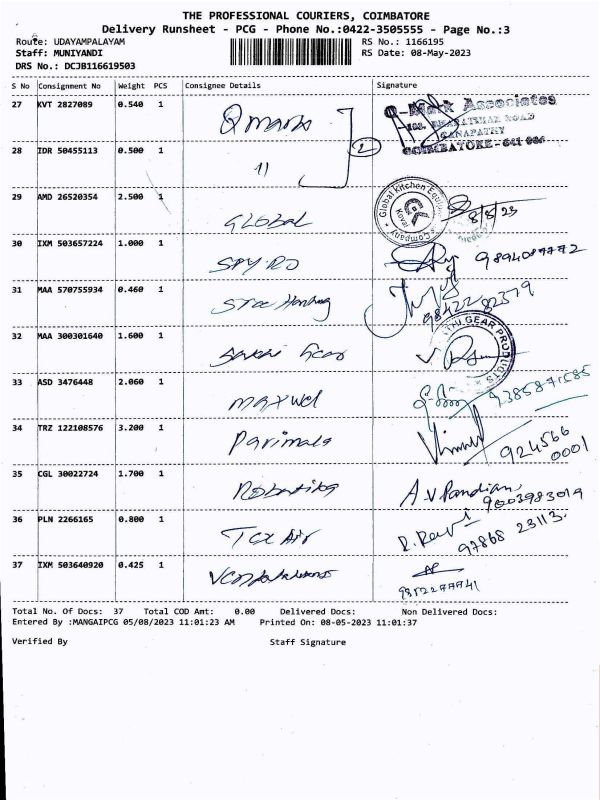 THE PROFESSIONAL COURIERS, COIMBATORE
Delivery Runsheet - PCG - Phone No.:0422-3505555 - Page No.:3
Route: UDAYAMPALAYAM RS No.: 1166195
Staff: MUNIYANDI RS Date: 08-May-2023
DRS No.: DCJB116619503
S No Consignment No Weight PCS Consignee Details Signature
27 KVT 2827089 0.540 1 Qmarks Q-Mark Associates
ROAD
GANAPATHY
COIMBATORE - 641 006
28 IDR 50455113 0.500 1 11 2
29 AMD 26520354 2.500 1 GLOBAL Global Kitchen Company Kovai 8/5/23
30 IXM 503657224 1.000 1 SPYRO 9894089772
31 MAA 570755934 0.460 1 9842282379
32 MAA 300301640 1.600 1 Sakthi Gear THI GEAR PRODUCTS
33 ASD 3476448 2.060 1 Maxwel 9385871585
34 TRZ 122108576 3.200 1 Parimala Vimal 924566
0001
35 CGL 30022724 1.700 1 A.V.Pandian,
9003983019
36 PLN 2266165 0.800 1 Tex Air R. Ravi
97868 23113.
37 IXM 503640920 0.425 1
Total No. Of Docs: 37 Total COD Amt: 0.00 Delivered Docs: Non Delivered Docs:
Entered By :MANGAIPCG 05/08/2023 11:01:23 AM Printed On: 08-05-2023 11:01:37
Verified By Staff Signature